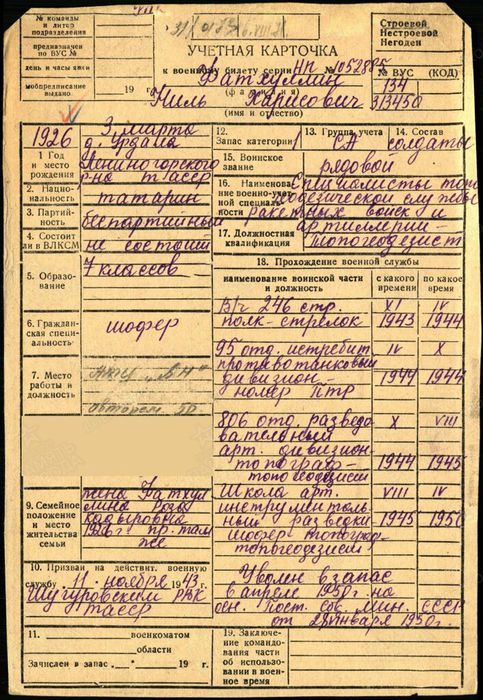 № команды
и литер
подразделения
предназначен
по ВУС №
день и часы явки
мобпредписание
выдано
УЧЕТНАЯ КАРТОЧКА
к военному билету серии НП № 1052885
Фатхуллин
(фамилия)
19
Ниль Харисович
(имя и отчество)
Строевой
Нестроевой
Негоден
№ ВУС (КОД)
134
313450
1926
1 Год и
место
рождения
3 марта
д. Урдали
Лениногорского
р-на ТАССР
2. Национальность
татарин
3. Партийность
беспартийный
4. Состоит
ли в ВЛКСМ
не состоит
5. Образование
7 классов
6. Гражданская специальность
шофер
7. Место
работы и
должность
9. Семейное
положение
и место
жительства
семьи
жена Фатхул
лина Роза
Кадыровна
1926 г.
10. Призван на действит. военную
службу 11 ноября 1943 г.
Шугуровским РВК
ТАССР
11. военкоматом
области
Зачислен в запас „ “ 19 г.
12.
Запас категории 1
13. Группа учета
СА
14. Состав
солдаты
15. Воинское
звание
рядовой
16. Наименование военно-учетной специальности
Специалисты топо
геодезической службы
ракетных войск и
артиллерии -
17. Должностная
квалификация
топогеодезист
18. Прохождение военной службы
наименование воинской части
и должность
с какого
времени
по какое
время
в/ч 246 стр.
полк - стрелок
XI
1943
IV
1944
95 отд. истребит.
противотанковый
дивизион -
номер ПТР
IV
1944
X
1944
806 отд. разведо
вательный
арт. дивизион -
топограф -
топогеодезист
X
1944
VIII
1945
Школа арт.
инструменталь
ный разведки
шофер топограф
топогеодезист
VIII
1945
IV
1950
Уволен в запас
в апреле 1950 г. на
осн. Пост. Сов. Мин. СССР
от 28 января 1950 г.
19. Заключение
командования части
об использовании в военное время